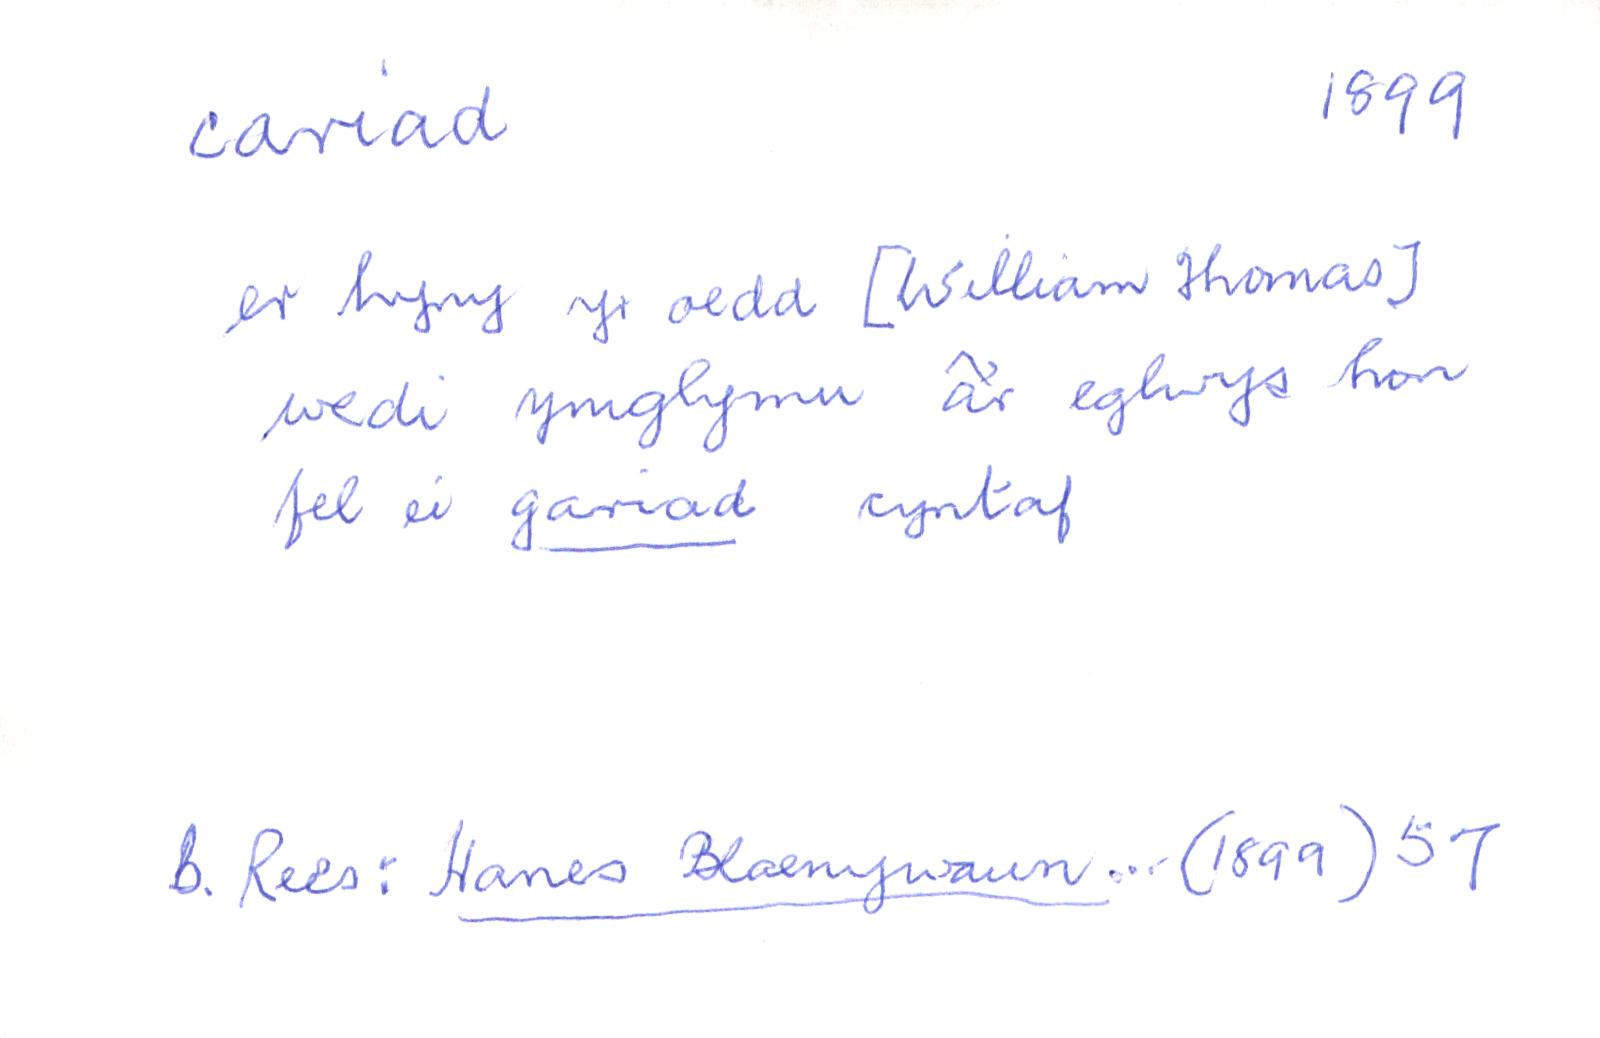 cariad 1899
er hyny yr oedd [William Thomas]
wedi ymglymu â'r eglwys hon
fel ei gariad cyntaf
B. Rees: Hanes Blaenywaun... (1899) 57